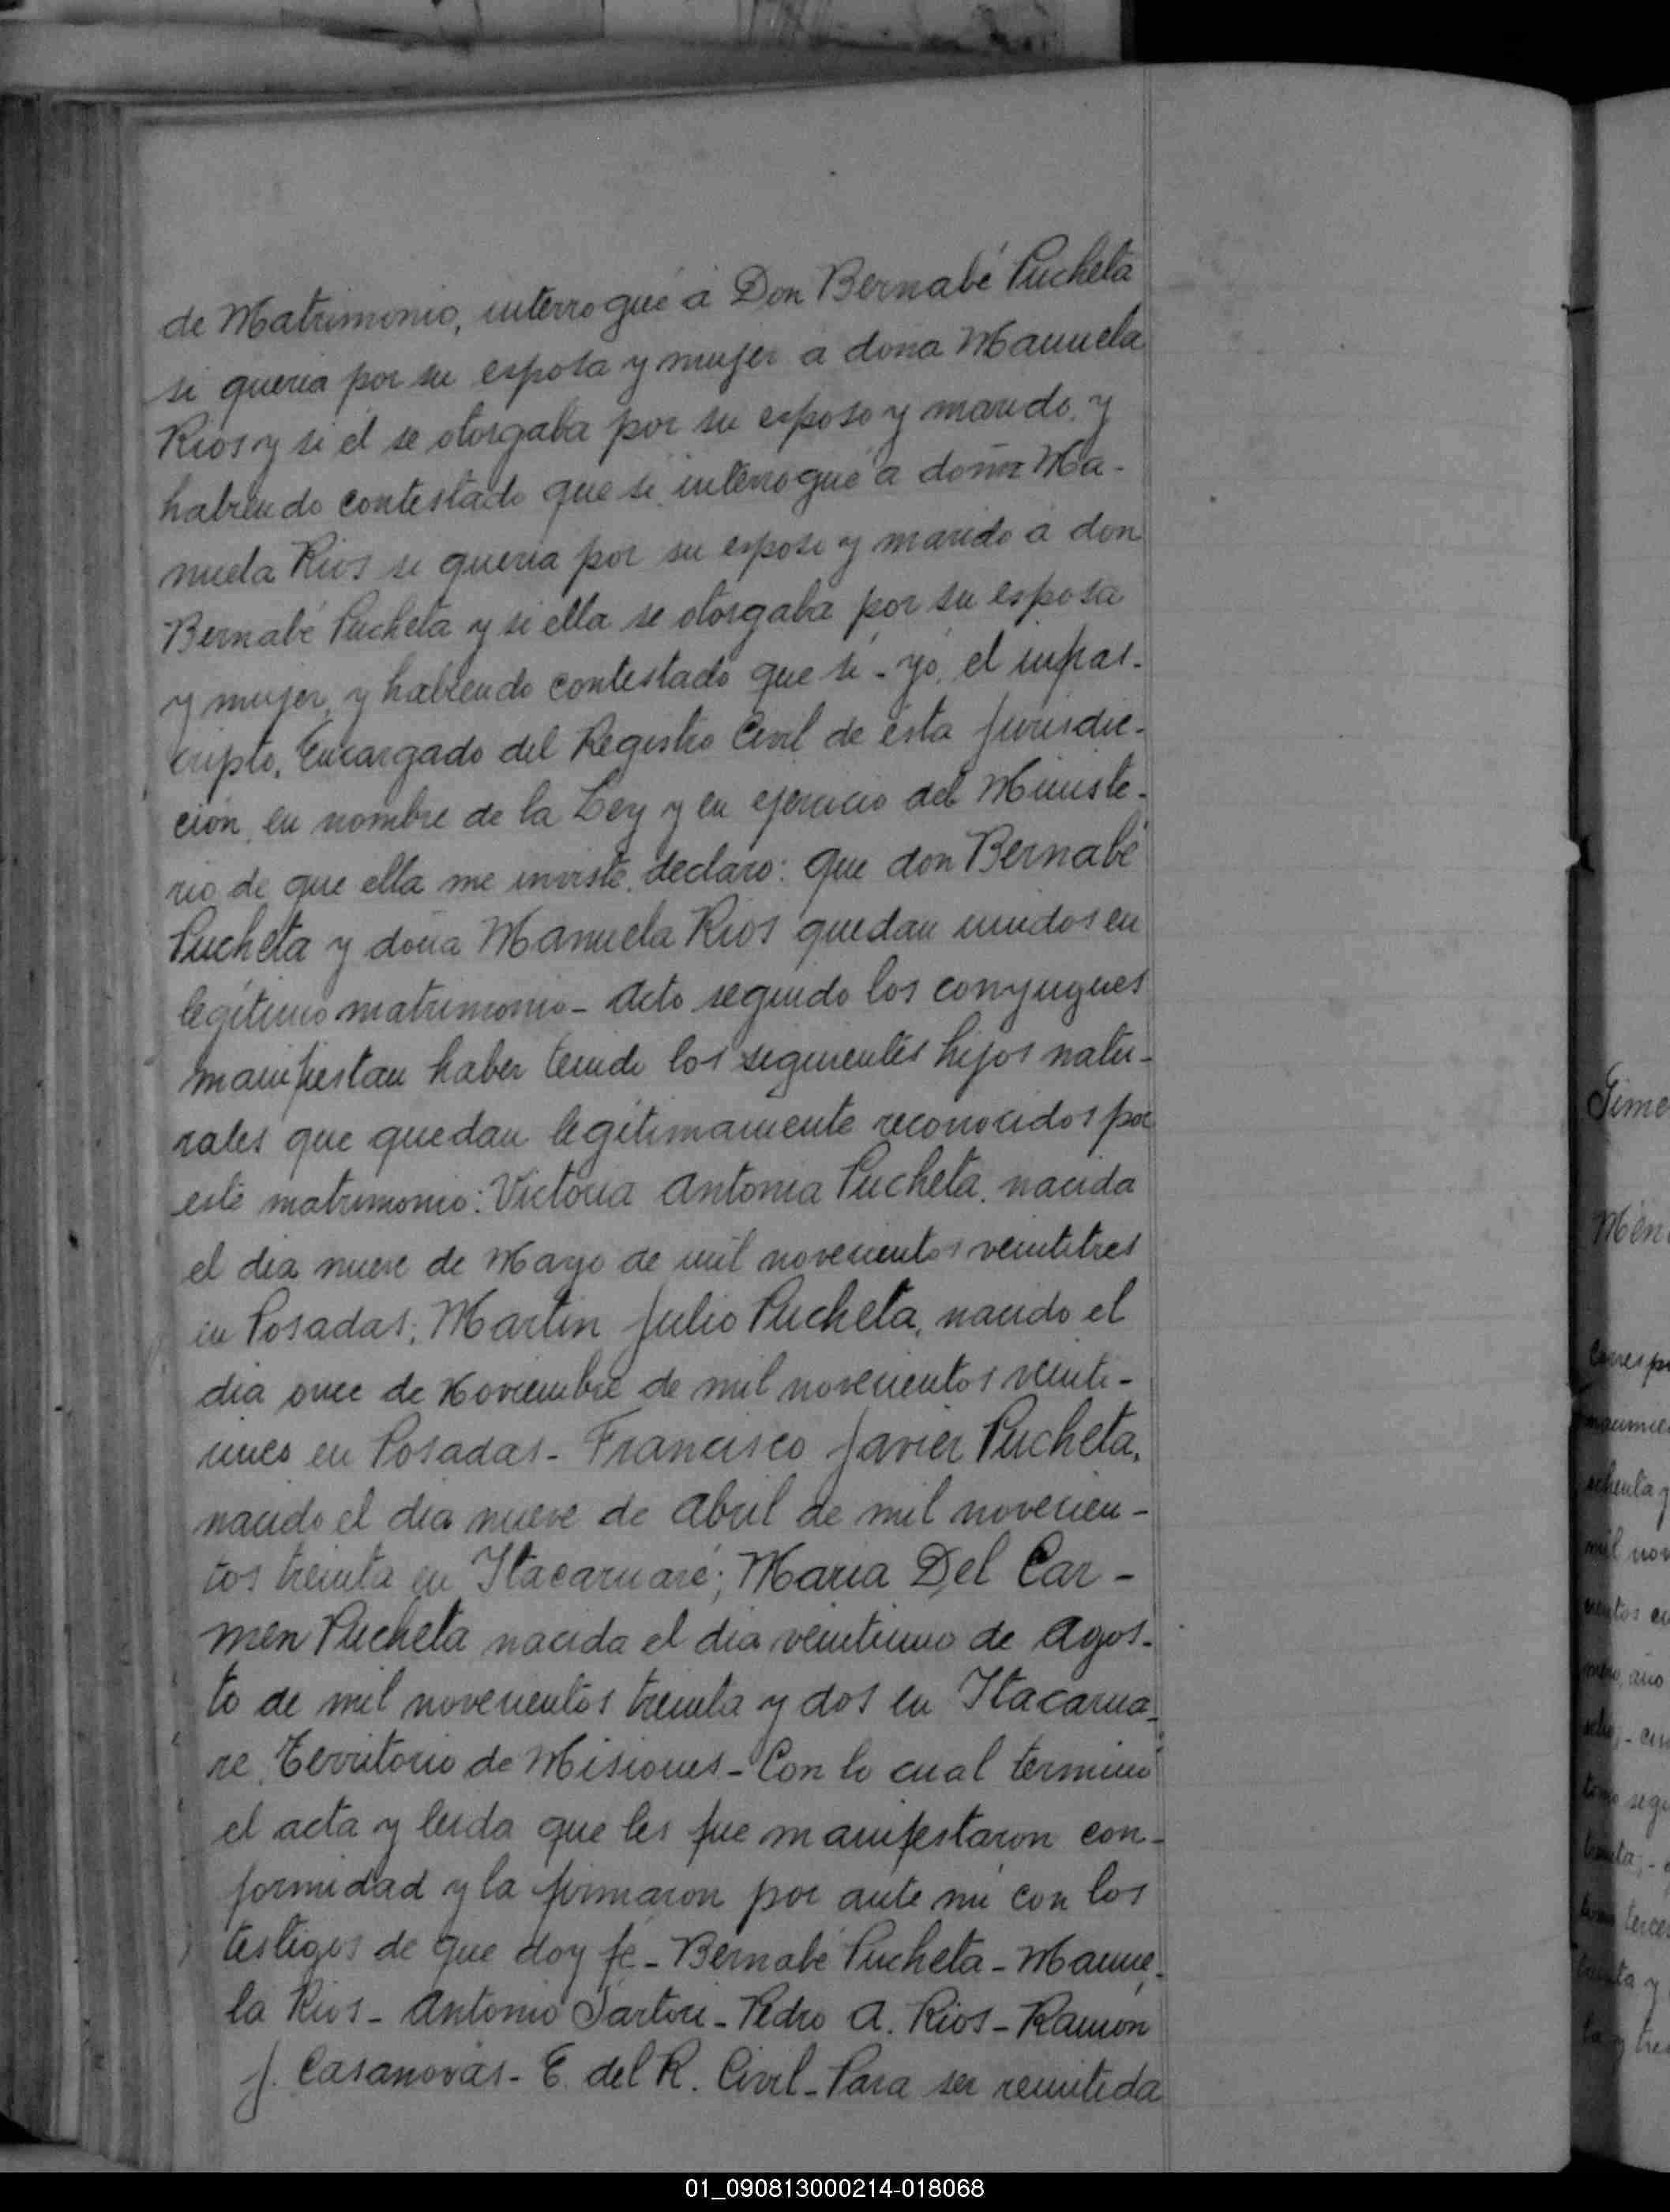 de Matrimonio, interrogué á Don Bernabé Pucheta
si queria por su esposa y mujer a doña Manuela
Rios y si él se otorgaba por su esposo y marido, y
habiendo contestado que si, interrogué a doña Ma-
nuela Rios si queria por su esposo y marido a don
Bernabé Pucheta y si ella se otorgaba por su esposa
y mujer, y habiendo contestado que si - yo, el infras-
cripto, Encargado del Registro Civil de esta Jurisdic-
ción, en nombre de la Ley y en ejercicio del Ministe-
rio de que ella me inviste, declaro: que don Bernabé
Pucheta y doña Manuela Rios quedan unidos en
legítimo matrimonio - Acto seguido los conyugues
manifiestan haber tenido los siguientes hijos natu-
rales que quedan legítimamente reconocidos por
este matrimonio: Victoria Antonia Pucheta, nacida
el dia nueve de Mayo de mil novecientos veintitres
en Posadas; Martin Julio Pucheta, nacido el
dia once de Noviembre de mil novecientos veinti-
cinco en Posadas - Francisco Javier Pucheta,
nacido el dia nueve de Abril de mil novecien-
tos treinta en Itacaruaré; Maria Del Car-
men Pucheta nacida el dia veintiuno de Agos-
to de mil novecientos treinta y dos en Itacarua-
re, Territorio de Misiones - Con lo cual terminó
el acta y leida que les fue manifestaron con-
formidad y la firmaron por ante mi con los
testigos de que doy fe - Bernabé Pucheta - Manue-
la Rios - Antonio Sartori - Pedro A. Rios - Ramón
J. Casanovas - E. del R. Civil - Para ser remitida
01_090813000214-018068